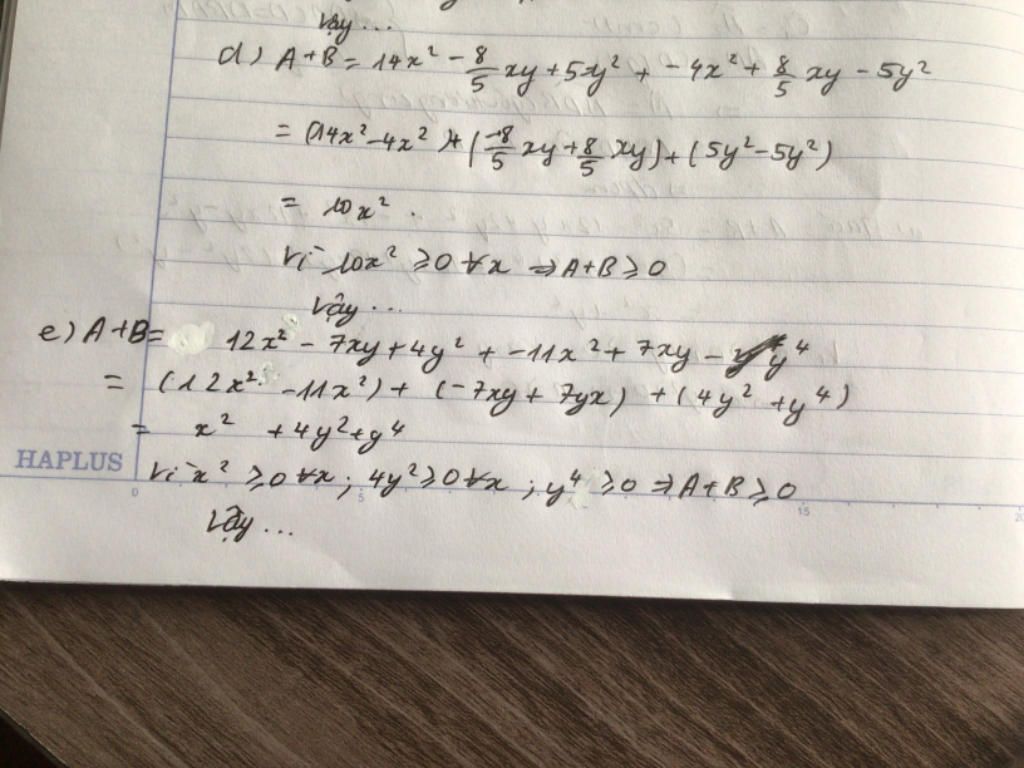 Vậy...
d) A+B = 14x² - 8/5 xy + 5y² + -4x² + 8/5 xy - 5y²
= (14x² - 4x²) + (-8/5 xy + 8/5 xy) + (5y² - 5y²)
= 10x².
Vì 10x² ≥ 0 ∀x ⇒ A+B ≥ 0
Vậy...
e) A+B = 12x² - 7xy + 4y² + -11x² + 7xy - y⁴
= (12x² - 11x²) + (-7xy + 7yx) + (4y² + y⁴)
= x² + 4y² + y⁴
HAPLUS
Vì x² ≥ 0 ∀x ; 4y² ≥ 0 ∀x ; y⁴ ≥ 0 ⇒ A+B ≥ 0
0 5 15 20
Vậy...